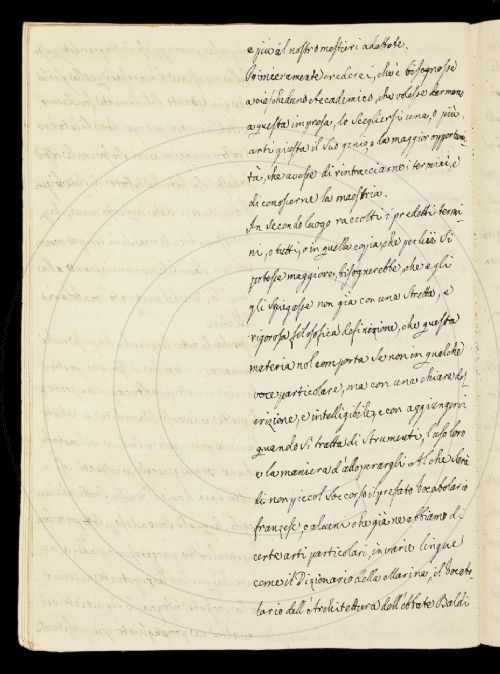 e più al nostro mestieri adattate.
Primieramente crederei, che bisognasse
a ciascheduno Accademico, che volesse dar mano
a questa impresa, lo scegliersi una, o più
arti giusta il suo genio, o la maggior opportuni-
tà, che avesse di rintracciarne i termini, e
di conoscerne la maestria.
In secondo luogo raccolti i predetti termi-
ni, o tutti, o in quella copia, che per lui si
potesse maggiore, bisognerebbe, che egli
gli spiegasse non già con una stretta, e
rigorosa filosofica definizione, che questa
materia nol comporta se non in qualche
voce particolare, ma con una chiara des-
crizione, e intelligibile, e con aggiungervi
quando si tratta di Strumenti, l'uso loro
e la maniera d'alloperargli. Al che sarà
di non piccol soccorso il prefato Vocabolario
franzese, o alcuni che già ne abbiamo di
certe arti particolari, in varie lingue
come il Dizionario della Marina, il Vocabo-
lario dell'Architettura dell'Abbate Baldi